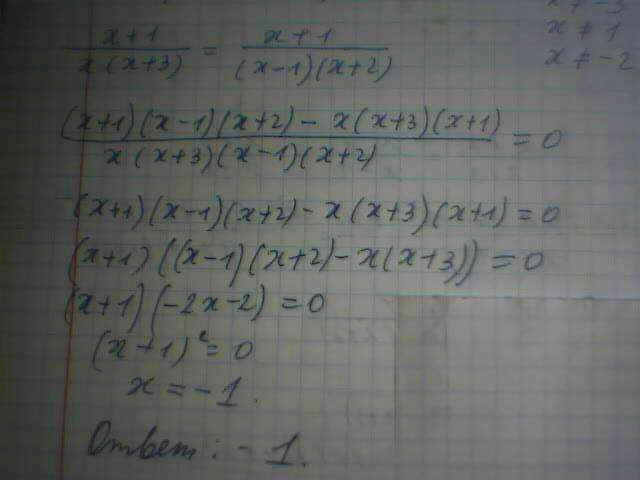 x+1/x(x+3) = x+1/(x-1)(x+2)
x ≠ -3
x ≠ 1
x ≠ -2
(x+1)(x-1)(x+2) - x(x+3)(x+1)/x(x+3)(x-1)(x+2) = 0
(x+1)(x-1)(x+2) - x(x+3)(x+1) = 0
(x+1)((x-1)(x+2) - x(x+3)) = 0
(x+1)(-2x-2) = 0
(x+1)² = 0
x = -1.
Ответ: -1.